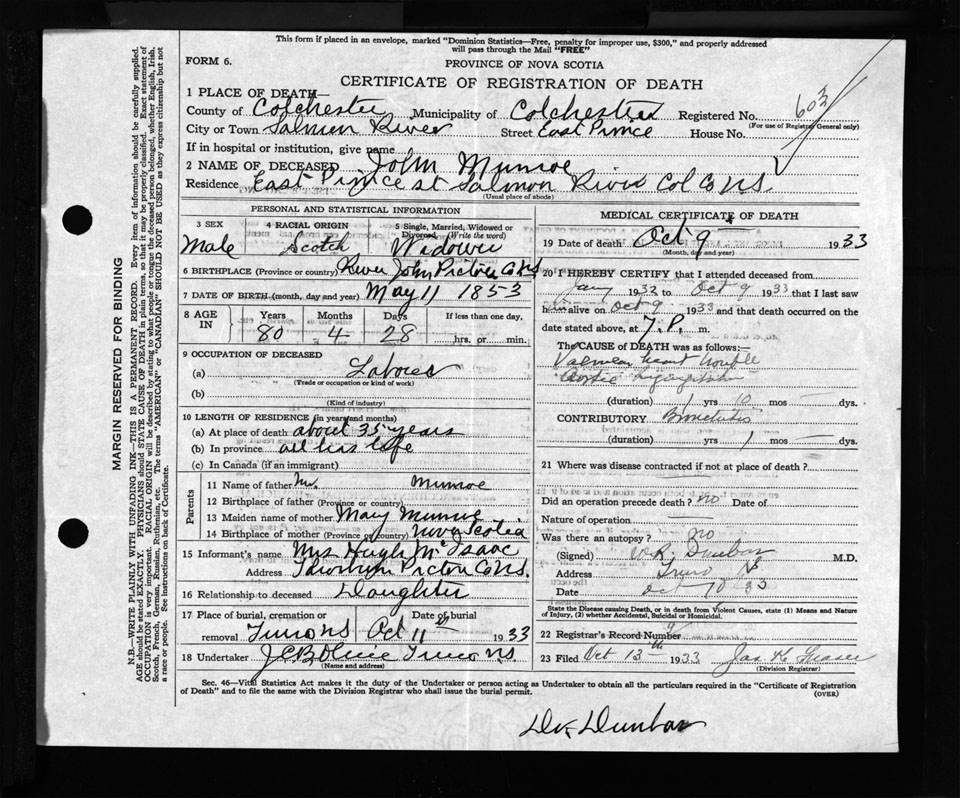 This form if placed in an envelope, marked "Dominion Statistics—Free, penalty for improper use, $300," and properly addressed
will pass through the Mail "FREE"
FORM 6.
PROVINCE OF NOVA SCOTIA
CERTIFICATE OF REGISTRATION OF DEATH
603
1 PLACE OF DEATH—
County of Colchester Municipality of Colchester Registered No.
(For use of Registrar General only)
City or Town Salmon River Street East Prince House No.
If in hospital or institution, give name
2 NAME OF DECEASED John Munroe
Residence East Prince st Salmon River Col Co NS
(Usual place of abode)
PERSONAL AND STATISTICAL INFORMATION
3 SEX 4 RACIAL ORIGIN 5 Single, Married, Widowed or Divorced (Write the word)
Male Scotch Widower
6 BIRTHPLACE (Province or country) River John Pictou Co NS
7 DATE OF BIRTH (month, day and year) May 11 1853
8 AGE IN Years Months Days If less than one day,
80 4 28 hrs. or min.
9 OCCUPATION OF DECEASED
(a) Laborer
(Trade or occupation or kind of work)
(b)
(Kind of industry)
10 LENGTH OF RESIDENCE (in years and months)
(a) At place of death about 35 years
(b) In province all his life
(c) In Canada (if an immigrant)
Parents
11 Name of father Mr. Munroe
12 Birthplace of father (Province or country)
13 Maiden name of mother Mary Munroe
14 Birthplace of mother (Province or country) Nova Scotia
15 Informant's name Mrs Hugh McIsaac
Address Thorburn Pictou Co NS.
16 Relationship to deceased Daughter
17 Place of burial, cremation or removal Truro NS Date of burial Oct 11th 1933
18 Undertaker Truro NS.
(Name and address)
MEDICAL CERTIFICATE OF DEATH
19 Date of death Oct 9 1933
(Month, day and year)
20 I HEREBY CERTIFY that I attended deceased from
Jany 1932 to Oct 9 1933 that I last saw
him alive on Oct 9 1933 and that death occurred on the
date stated above, at 7. P. m.
The CAUSE of DEATH was as follows:—
Valvular heart trouble
Aortic regurgitation
(duration) 1 yrs 10 mos dys.
CONTRIBUTORY Bronchitis
(duration) yrs 1 mos dys.
21 Where was disease contracted if not at place of death?
Did an operation precede death? no Date of
Nature of operation
Was there an autopsy? no
(Signed) Dunbar M.D.
Address Truro NS
Date Oct 10 33
State the Disease causing Death, or in death from Violent Causes, state (1) Means and Nature
of Injury, (2) whether Accidental, Suicidal or Homicidal.
22 Registrar's Record Number
23 Filed Oct 13th 1933 Jas Fraser
(Division Registrar)
Sec. 46—Vital Statistics Act makes it the duty of the Undertaker or person acting as Undertaker to obtain all the particulars required in the "Certificate of Registration
of Death" and to file the same with the Division Registrar who shall issue the burial permit.
(OVER)
Dr. Dunbar
MARGIN RESERVED FOR BINDING
N.B.—WRITE PLAINLY WITH UNFADING INK—THIS IS A PERMANENT RECORD. Every item of information should be carefully supplied.
AGE should be stated EXACTLY. PHYSICIANS should STATE CAUSE OF DEATH in plain terms, so that it may be properly classified. Exact statement of
OCCUPATION is very important. RACIAL ORIGIN will be described by stating to what people or tongue the deceased person belonged, whether English, Irish,
Scotch, French, German, Russian, Ruthenian, etc. The terms "AMERICAN" or "CANADIAN" SHOULD NOT BE USED as they express citizenship but not
a race or people. See instructions on back of Certificate.